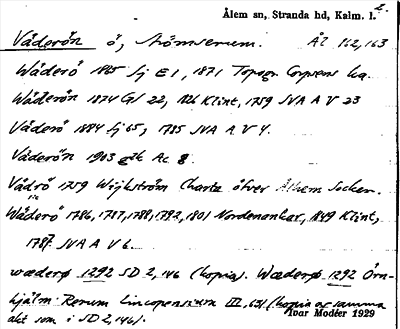 Ålem sn, Stranda hd, Kalm. l.
Våderön ö, Strömserum. Ål 162, 163
Wåderö 1865 Sj E 1, 1871 Topogr. Corpsens ka.
Wåderön 1874 GV 22, 1826 Klint, 1759 JVA A V 23
Våderö 1884 Sj 65, 1785 JVA A V 4.
Våderön 1903 ek Ac 8.
Vådrö 1759 Wijkström Charta öfver Ålhem Socken.
Wåderö 1786, 1787, 1788, 1792, 1801 Nordenankar, 1849 Klint,
1787 JVA A V 6.
wæderø 1292 SD 2, 146 (kopia). Wæderø 1292 Örn-
hjälm: Rerum Lincopensium III, 631 (kopia av samma
akt som i SD 2, 146).
Ivar Modéer 1929